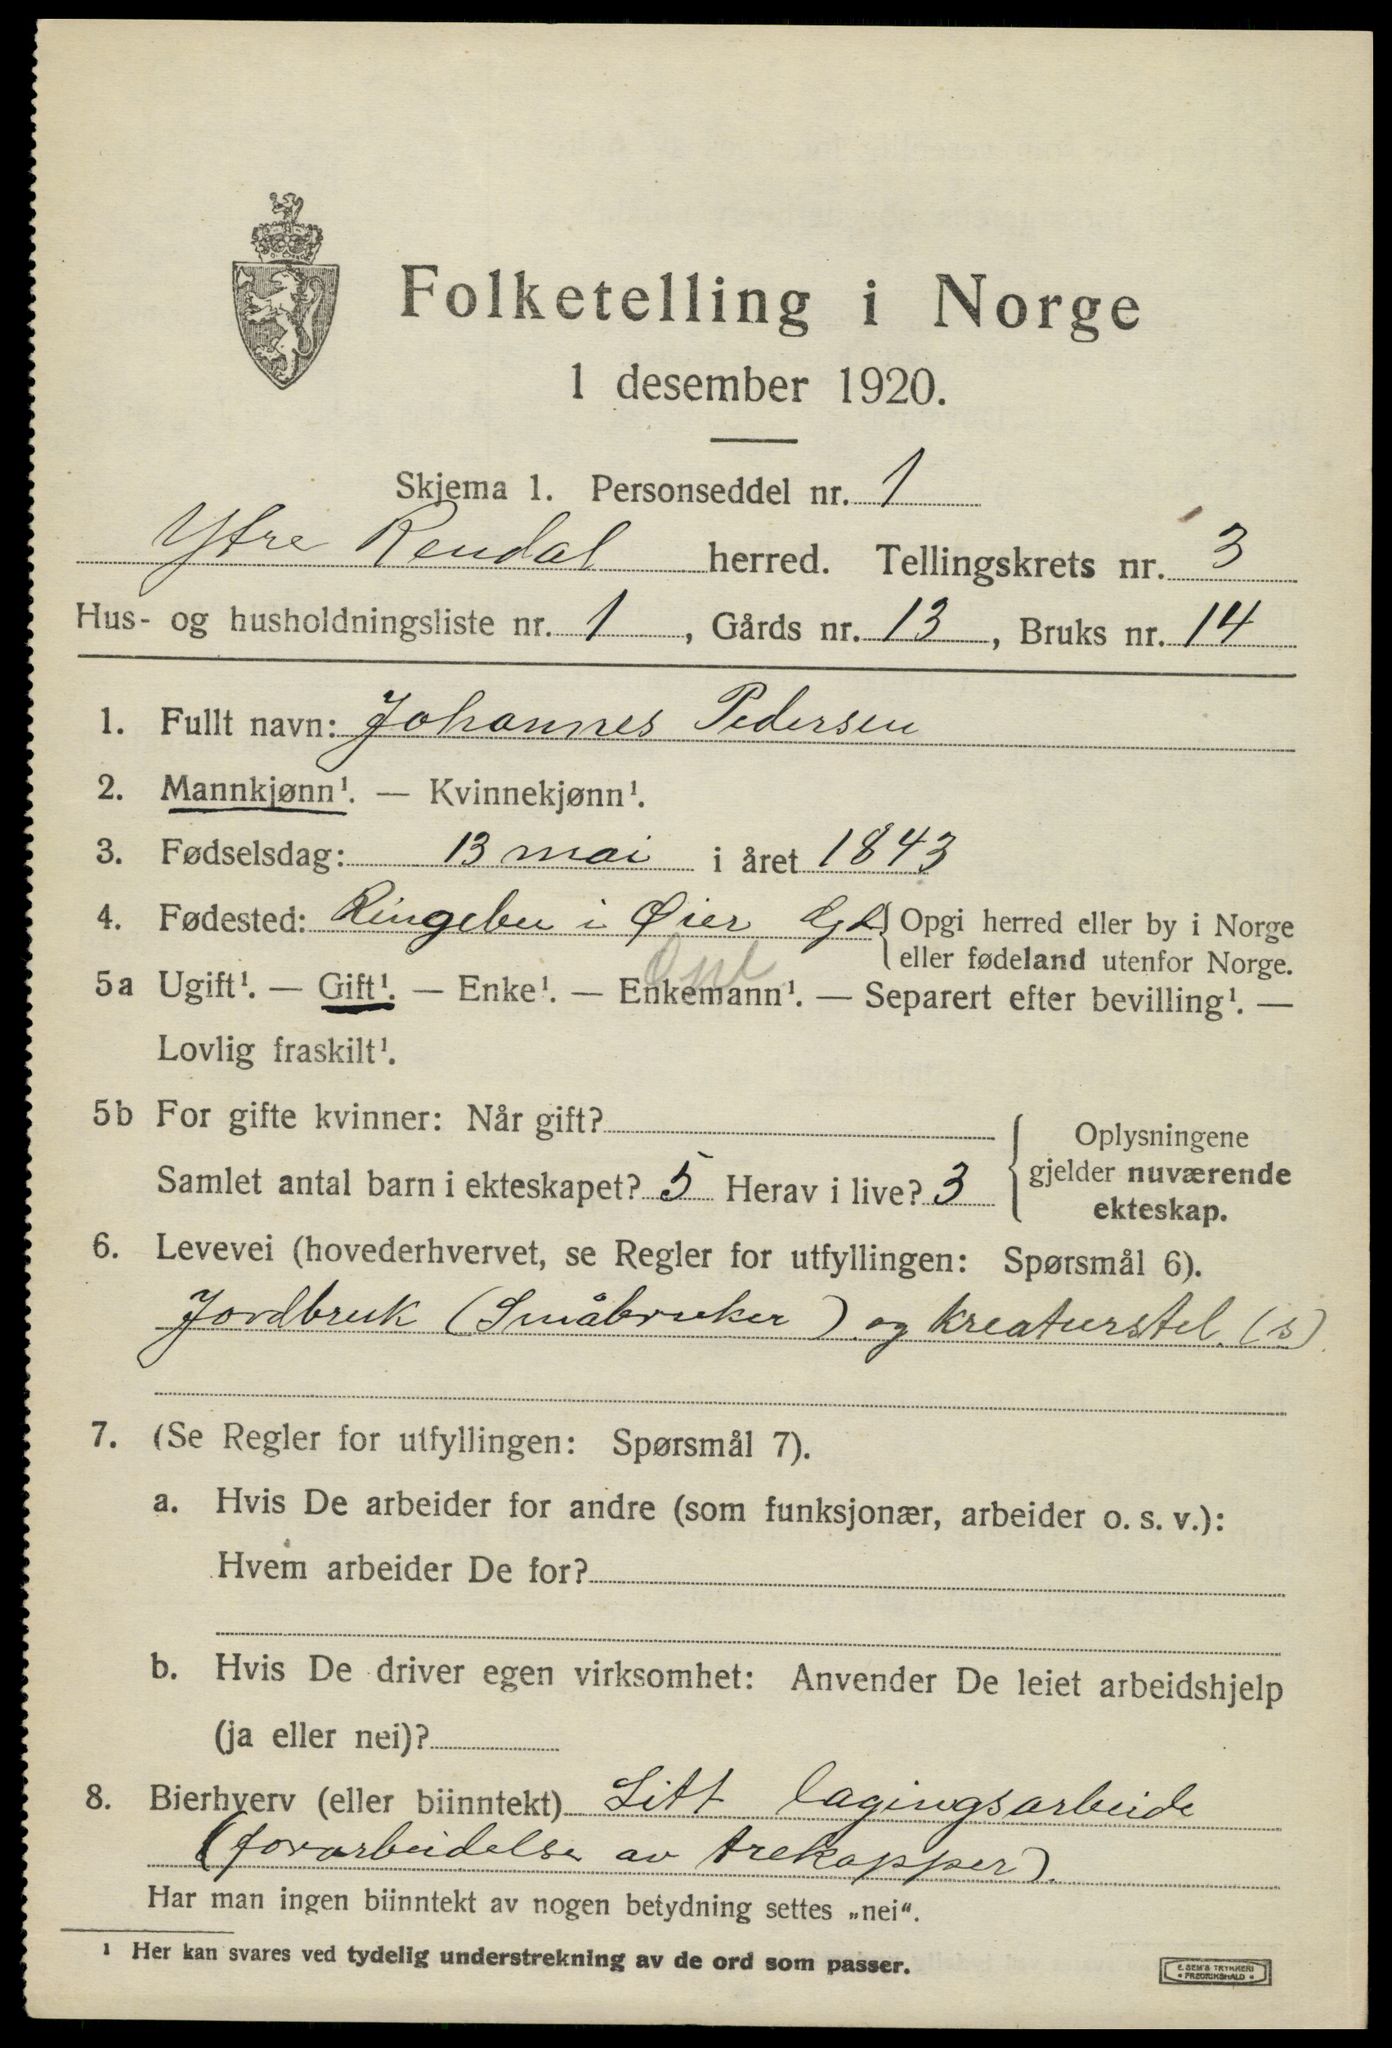 Folketelling i Norge
1 desember 1920.
Skjema 1. Personseddel nr. 1
Ytre Rendal herred. Tellingskrets nr. 3
Hus- og husholdningsliste nr. 1, Gårds nr. 13, Bruks nr. 14
1. Fullt navn: Johannes Pedersen
2. Mannkjønn¹. — Kvinnekjønn¹.
3. Fødselsdag: 13 mai i året 1843
4. Fødested: Ringebu i Øier Opgi herred eller by i Norge
eller fødeland utenfor Norge.
Opl
5a Ugift¹. — Gift¹. — Enke¹. — Enkemann¹. — Separert efter bevilling¹. —
Lovlig fraskilt¹.
5b For gifte kvinner: Når gift?
Samlet antal barn i ekteskapet? 5 Herav i live? 3
Oplysningene
gjelder nuværende
ekteskap.
6. Levevei (hovederhvervet, se Regler for utfyllingen: Spørsmål 6).
Jordbruk (Småbruker) og kreaturstel. (s)
7. (Se Regler for utfyllingen: Spørsmål 7).
a. Hvis De arbeider for andre (som funksjonær, arbeider o. s. v.):
Hvem arbeider De for?
b. Hvis De driver egen virksomhet: Anvender De leiet arbeidshjelp
(ja eller nei)?
8. Bierhverv (eller biinntekt) Litt lagingsarbeide
(forarbeidelse av trekopper).
Har man ingen biinntekt av nogen betydning settes „nei".
¹ Her kan svares ved tydelig understrekning av de ord som passer.
E. SEM'S TRYKKERI
FREDRIKSHALD